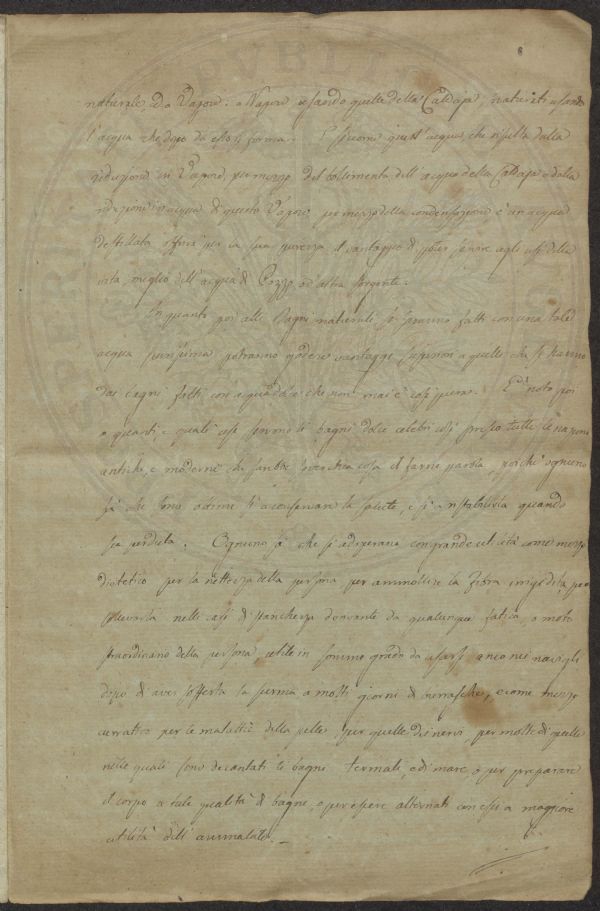 6
naturale ed a Vapore: a Vapore usando quelle della Caldaja, naturali usando
l'acqua che dopo da essa si forma. E siccome quest'acqua, che risulta dalla
riduzione in Vapore per mezzo del bollimento dell'acqua della Caldaja e dalla
riduzione in acqua di questo Vapore per mezzo della condensazione è un'acqua
distillata offrirà per la sua purezza il vantaggio di poter servire agli usi della
vita meglio dell'acqua di Pozzo, o d'altra sorgente.
In quanto poi alli Bagni naturali se saranno fatti con una tale
acqua purissima potranno godere vantaggi superiori a quelli che si hanno
dai bagni fatti con acqua dolce che non mai è così pura. E' noto poi
a quanti e quali usi servono i bagni dolci celebri così presso tutte le nazioni
antiche, e moderne che sarebbe soverchia cosa il farne parola, poichè ognuno
sà che sono ottimi a conservare la salute, e a ristabilirla quando
sia perduta. Ognuno sà che si adoperano con grande utilità come mezzo
dietetico per la nettezza della persona per ammollire la fibra irrigidita, per
sollevarla nelli casi di stanchezza derivante da qualunque fatica, o moto
straordinario della persona utile in sommo grado da usarsi anco nei navigli
dopo di aver sofferta la permanenza molti giorni di burrasche, e come mezzo
currativo per le malattie della pelle, per quelle dei nervi, per molte di quelle
nelle quali sono decantati li bagni termali, e di mare, o per preparare
il corpo a tale qualità di bagni, o per essere alternati con essi a maggiore
utilità dell'ammalato.
PVBLIC